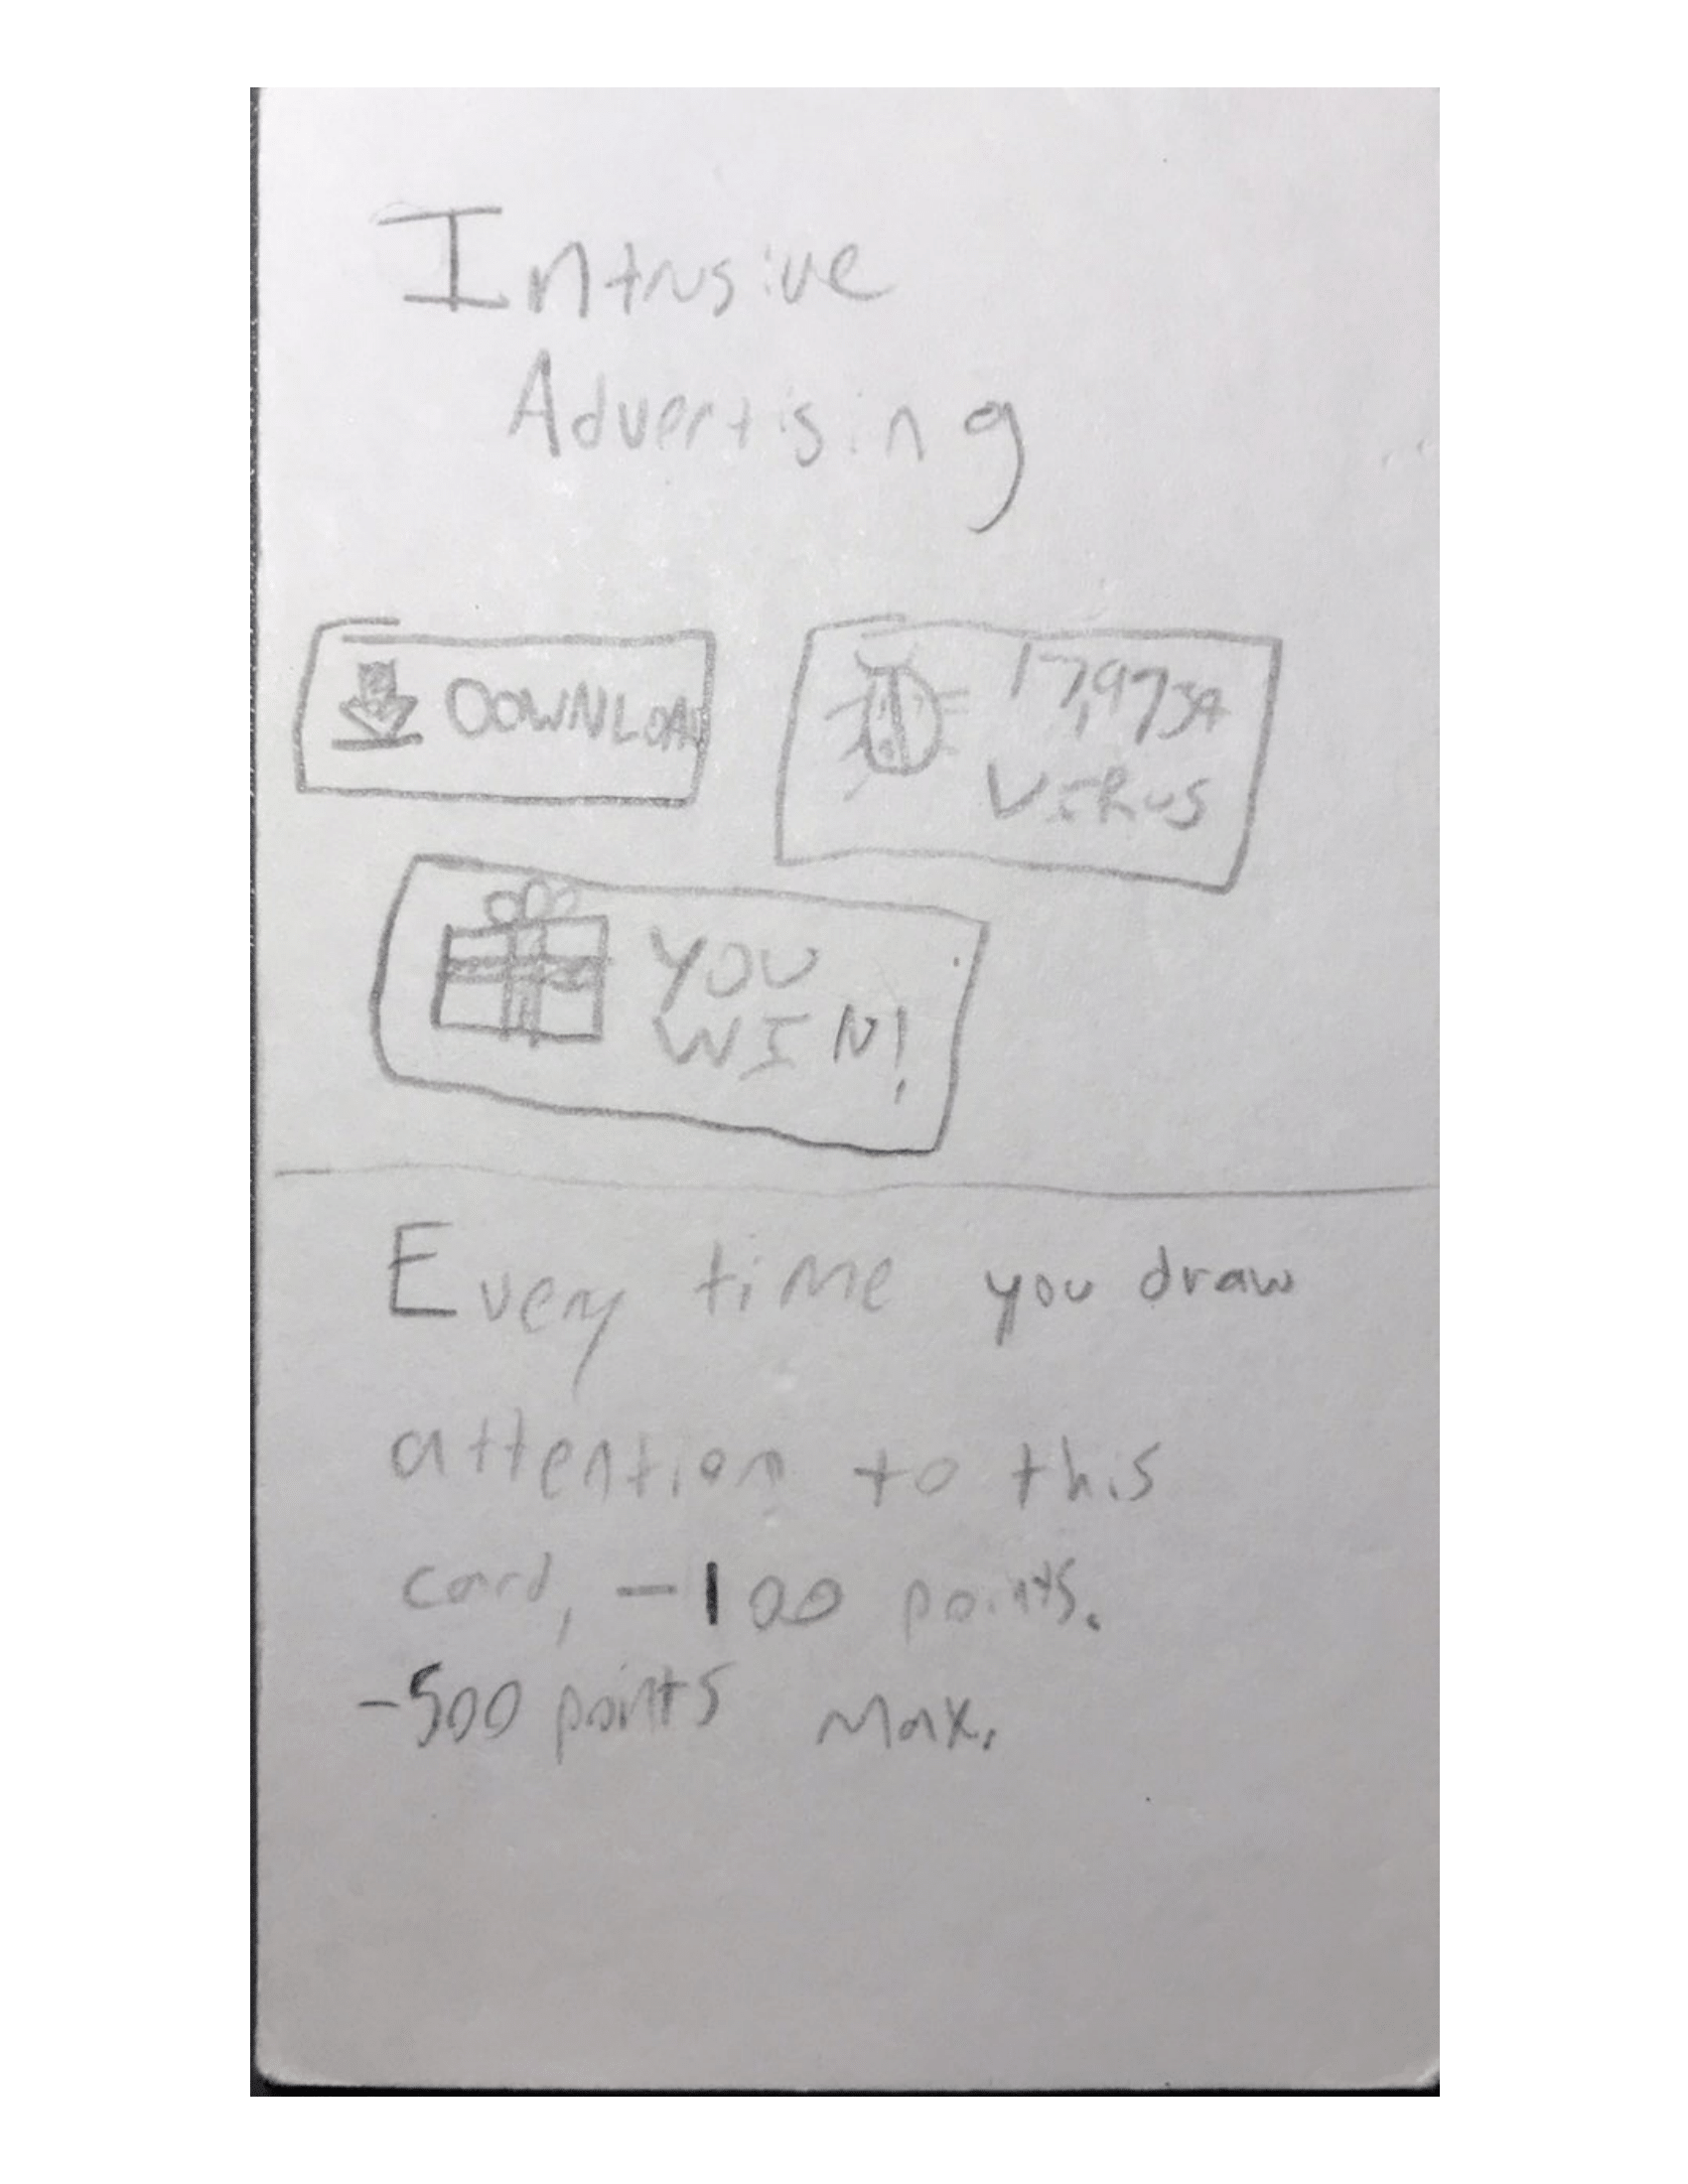 Intrusive
Advertising
DOWNLOAD
17,973+
VIRUS
YOU
WIN!
Every time you draw
attention to this
card, -100 points.
-500 points max.